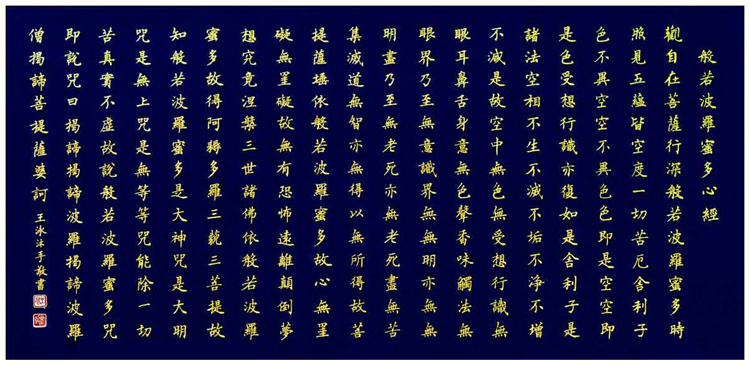 般若波羅蜜多心經
觀自在菩薩行深般若波羅蜜多時
照見五蘊皆空度一切苦厄舍利子
色不異空空不異色色即是空空即
是色受想行識亦復如是舍利子是
諸法空相不生不滅不垢不淨不增
不減是故空中無色無受想行識無
眼耳鼻舌身意無色聲香味觸法無
眼界乃至無意識界無無明亦無無
明盡乃至無老死亦無老死盡無苦
集滅道無智亦無得以無所得故菩
提薩埵依般若波羅蜜多故心無罣
礙無罣礙故無有恐怖遠離顛倒夢
想究竟涅槃三世諸佛依般若波羅
蜜多故得阿耨多羅三藐三菩提故
知般若波羅蜜多是大神咒是大明
咒是無上咒是無等等咒能除一切
苦真實不虛故說般若波羅蜜多咒
即說咒曰揭諦揭諦波羅揭諦波羅
僧揭諦菩提薩婆訶 王泳沐手敬書